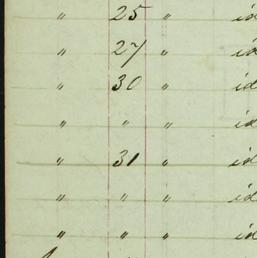 " 25 " id
" 27 "
" 30 " id
" " " id
" 31 " id
" " " id
" " " id